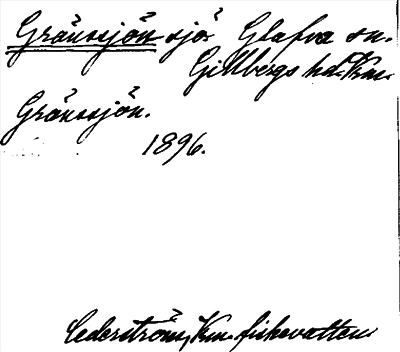 Gränssjön sjö Glafva sn.
Gillbergs hd. Krm.
Gränssjön.
1896.
Cederström, Krm. fiskevatten.